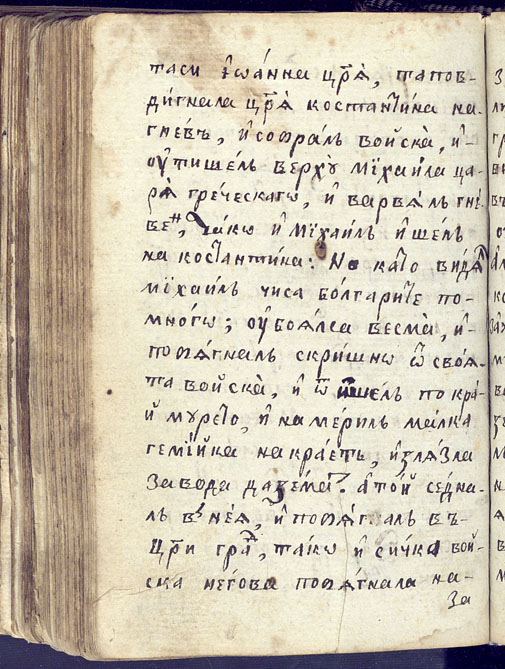 таси їѡа́нна цр҃ѧ̀, та пов-
ди́гнала цр҃ѧ̀ костанті́на на-
гне́въ, и҆ собра́лъ войска̀, и҆-
ѹ҆тише́лъ верхꙋ̀ мїхаи́ла ца-
рѧ̀ гре́ческагѡ, и҆ варвѧ́лъ гнѣ́-
ве<sup>н</sup>, та́кѡ и҆ мїхаи́лъ и҆ше́лъ
на костанти́на: Но като видѧ́<sup>л</sup>
мїхаи́лъ чиса бо́лгарите по-
мно́гѡ; ѹ҆боѧ́лса весма̀, и҆-
потѧ́гналъ скри́шнѡ ѿ своѧ̀-
та войска̀, и҆ ѿише́лъ по кра́-
й мурето, и҆ намери́лъ ма́лка
геми́йка на кра́етъ, и҆злѧ́зла
за вода да зема<sup>т</sup>. а҆ то́й се́дна-
лъ в неѧ̀, и҆ потѧ́гналъ въ-
Цр҃и гра<sup>д</sup>, та́кѡ и҆ си́чка вой-
ска не́гова потѧ́гнала на-
за